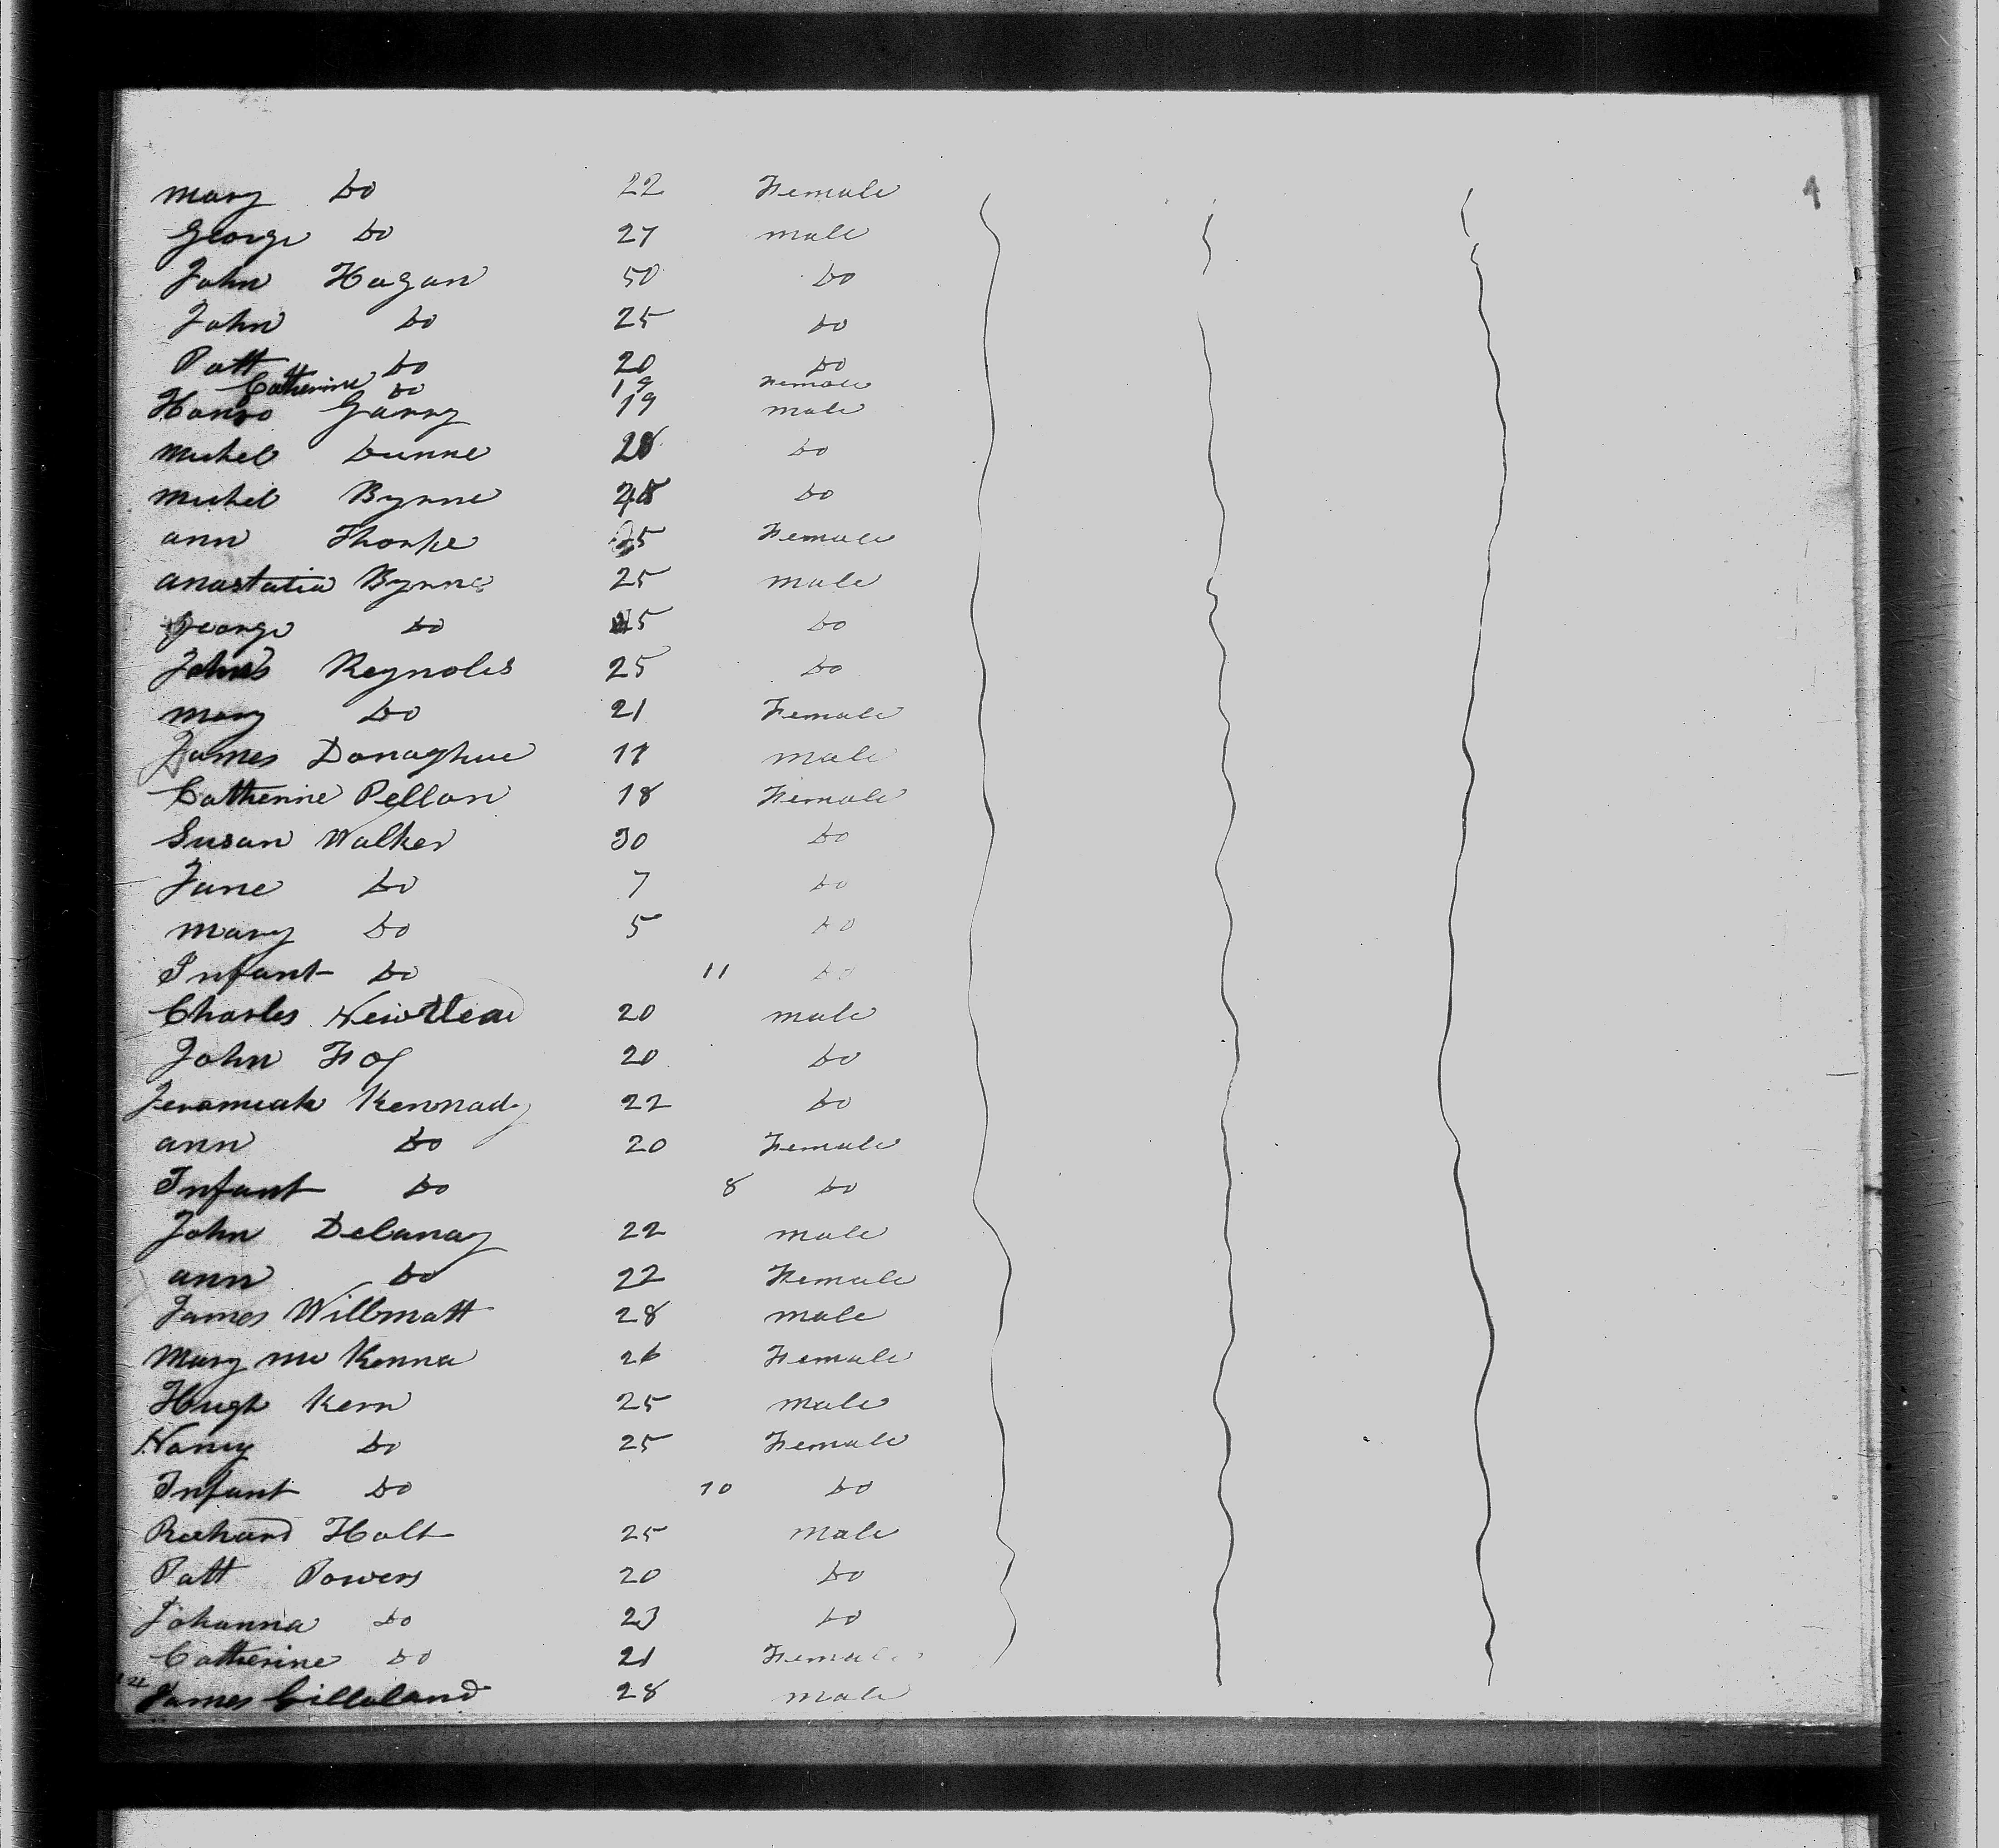 Mary Do 22 Female
George Do 27 male
John Hagan 50 Do
John Do 25 Do
Patt Do 20 Do
Catherine Do 19 Female
Garry 19 male
Michel Dunne 28 Do
Michel Byrne Do
ann Thorpe 25 Female
anastatia Byrne 25 male
George Do Do
Reynolds 25 Do
Mary Do 21 Female
James Donaghue male
Catherine Pellan 18 Female
Susan Walker 30 Do
Jane Do 7 Do
Mary Do 5 Do
Infant Do 11 Do
Charles 20 male
John Foy 20 Do
Jeramiah Kennady 22 Do
ann Do 20 Female
Infant Do 8 Do
John Delanay 22 male
ann Do 22 Female
James Willmatt 28 male
Mary Mc Kenna 26 Female
Hugh Kern 25 male
Nancy Do 25 Female
Infant Do 10 Do
Richard Holt 25 Male
Patt Powers 20 Do
Johanna Do 23 Do
Catherine Do 21 Female
James Gilleland 28 male